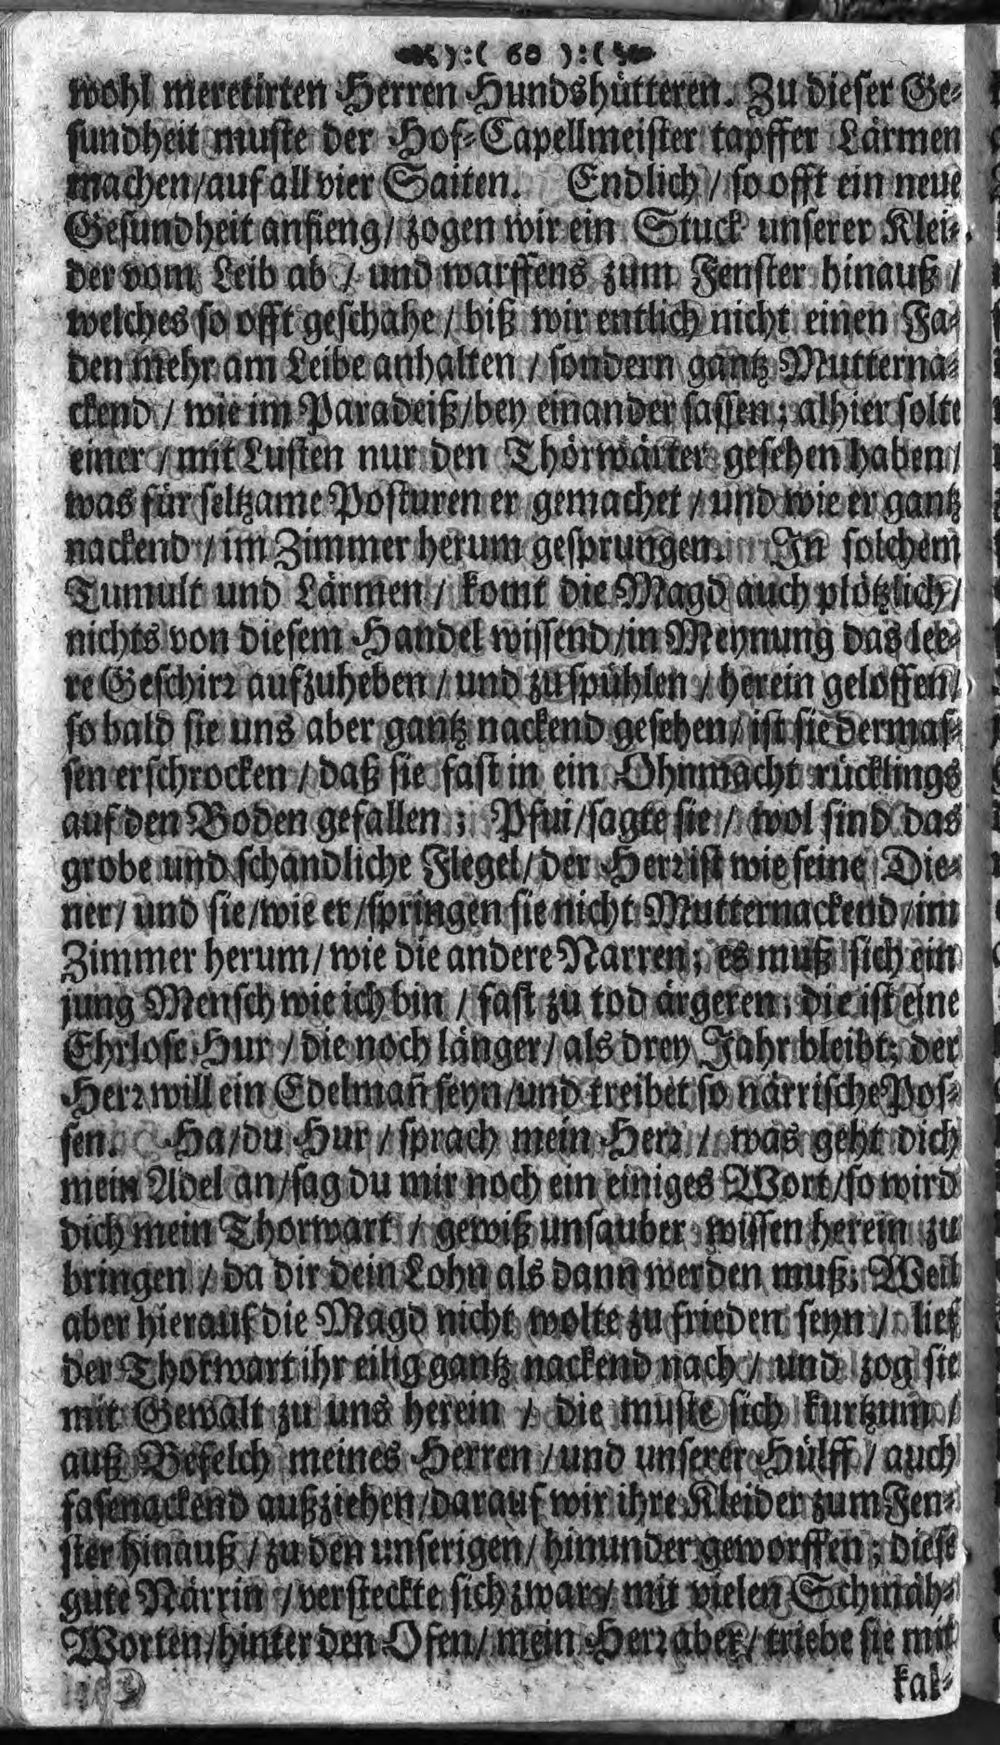 ):( 60 ):(
wohl meretirten Herren Hundshütteren. Zu dieser Ge-
sundheit muste der Hof-Capellmeister tapffer Lärmen
machen/auf all vier Saiten. Endlich / so offt ein neue
Gesundheit anfieng/ zogen wir ein Stuck unserer Klei-
der vom Leib ab / und warffens zum Fenster hinauß /
welches so offt geschahe / biß wir entlich nicht einen Fa-
den mehr am Leibe anhalten / sondern gantz Mutterna-
ckend / wie im Paradeiß/bey einander sassen; alhier solte
einer / mit Lusten nur den Thorwärter gesehen haben/
was für seltzame Posturen er gemachet / und wie er gantz
nackend / im Zimmer herum gesprungen. In solchem
Tumult und Lärmen / komt die Magd auch plötzlich/
nichts von diesem Handel wissend/in Meynung das lee-
re Geschirr aufzuheben / und zu spühlen / herein geloffen/
so bald sie uns aber gantz nackend gesehen/ ist sie dermas-
sen erschrocken / daß sie fast in ein Ohnmacht rücklings
auf den Boden gefallen; Pfui/sagte sie / wol sind das
grobe und schandliche Flegel/ der Herr ist wie seine Die-
ner/ und sie/wie er /springen sie nicht Mutternackend/im
Zimmer herum/ wie die andere Narren; es muß sich ein
jung Mensch wie ich bin / fast zu tod ärgeren; die ist eine
Ehrlose Hur / die noch länger/ als drey Jahr bleibt; der
Herr will ein Edelmañ seyn/und treibet so närrische Pos-
sen. Ha/du Hur / sprach mein Herr / was geht dich
mein Adel an/sag du mir noch ein einiges Wort/so wird
dich mein Thorwart / gewiß unsauber wissen herein zu
bringen / da dir dein Lohn als dann werden muß; Weil
aber hierauf die Magd nicht wolte zu frieden seyn / lief
der Thorwart ihr eilig gantz nackend nach / und zog sie
mit Gewalt zu uns herein / die muste sich kurtzum /
auß Befelch meines Herren / und unserer Hülff / auch
fasenackend außziehen/darauf wir ihre Kleider zum Fen-
ster hinauß / zu den unserigen/ hinunder geworffen; diese
gute Närrin / versteckte sich zwar/ mit vielen Schmäh-
Worten/hinter den Ofen/ mein Herr aber/ triebe sie mit
kal-